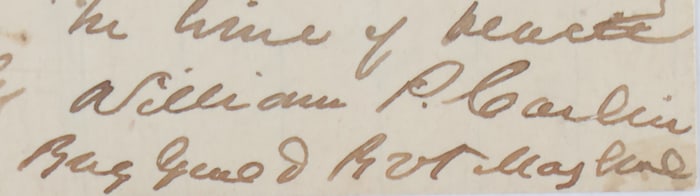 the time of peace
William P. Carlin
Brig Genl & Bvt Maj Genl